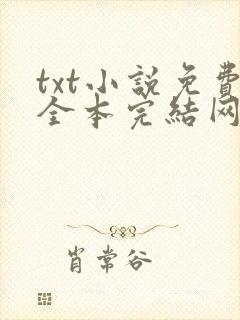 txt小説免費
全本完結网
肖常谷